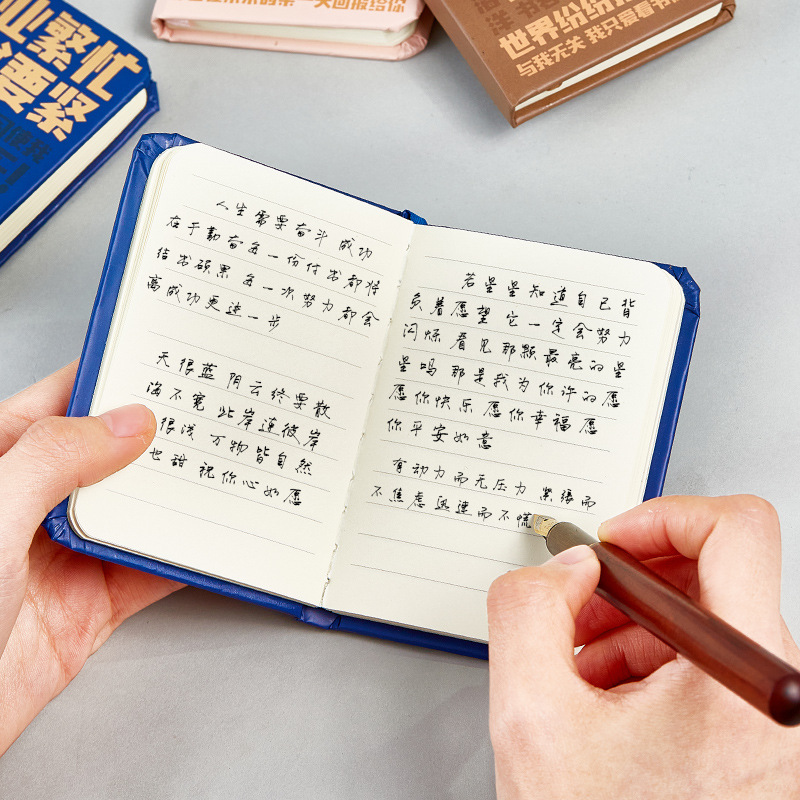 繁忙
要紧
世界纷纷
与我无关 我只爱看书
人生需要奋斗 成功
在于勤奋每一份付出都将
结出硕果 每一次努力都会
离成功更进一步
天很蓝 阴云终要散
海不宽 此岸连彼岸
很浅 万物皆自然
也甜 祝你心如愿
若星星知道自己背
负着愿望 它一定会努力
闪烁 看见那颗最亮的星
星吗 那是我为你许的愿
愿你快乐 愿你幸福 愿
你平安如意
有动力而无压力 紧张而
不焦虑 迅速而不慌